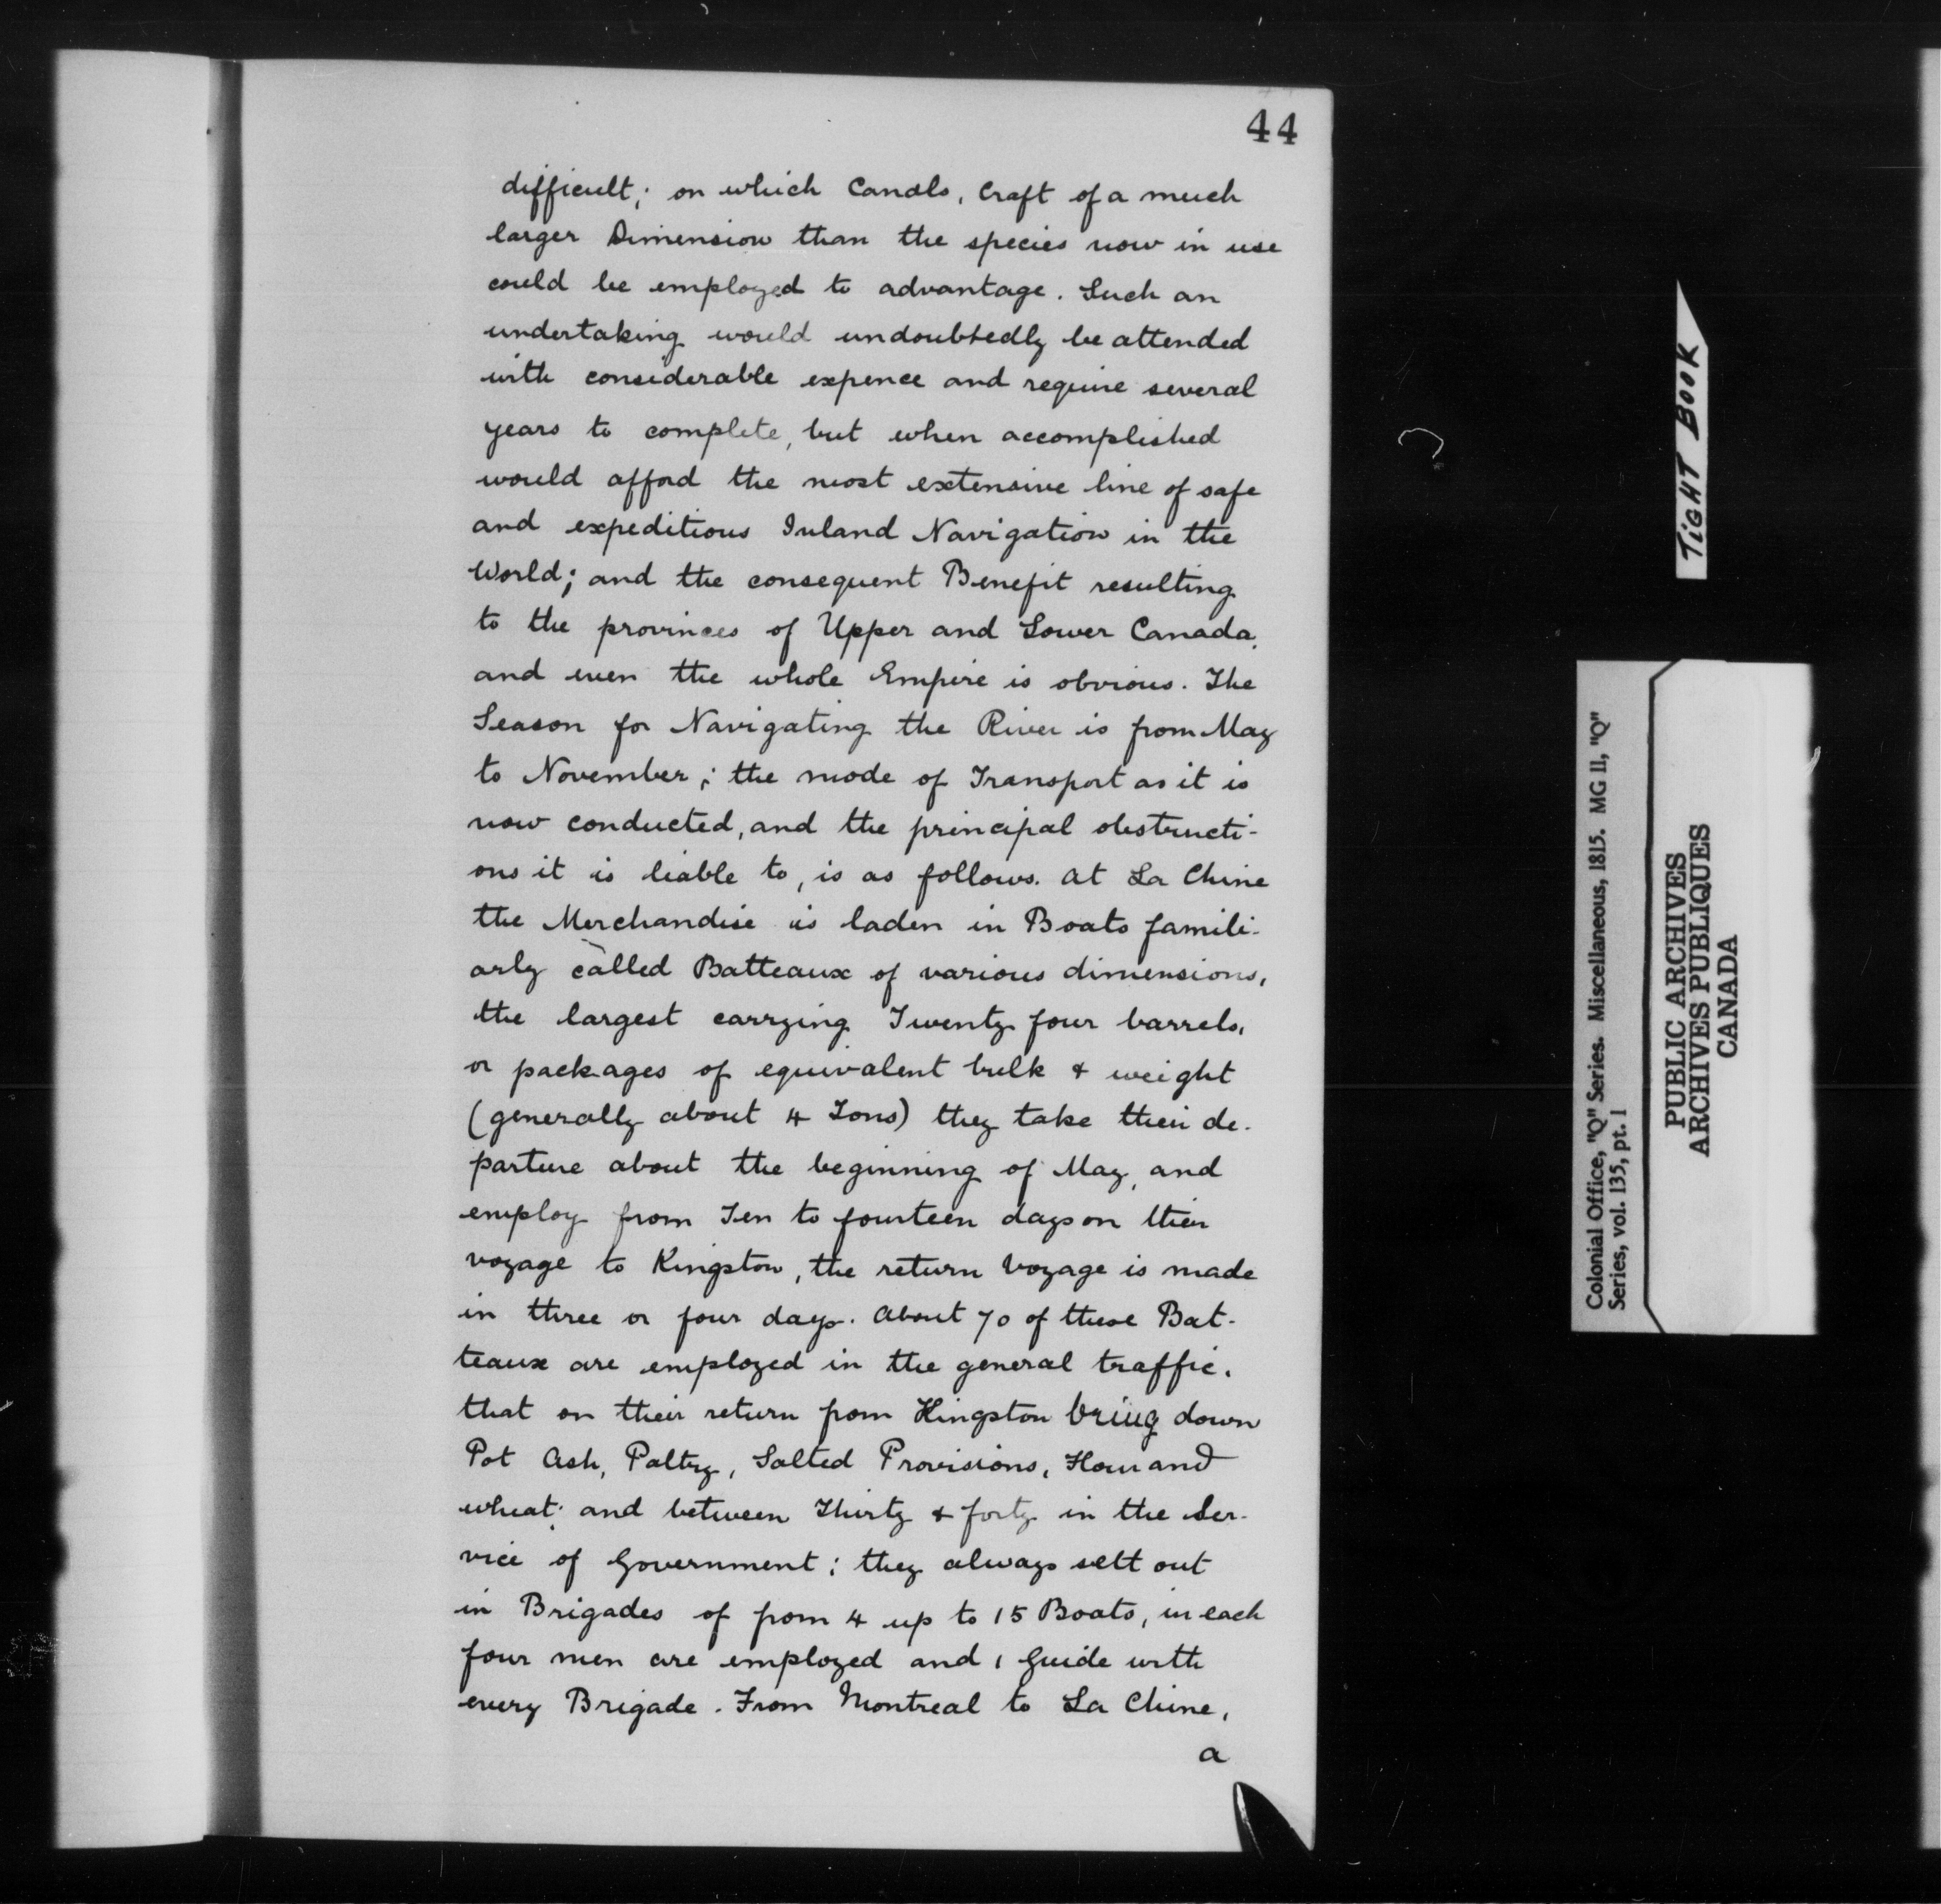 44
difficult; on which Canals, Craft of a much
larger Dimension than the species now in use
could be employed to advantage. Such an
undertaking would undoubtedly be attended
with considerable expence and require several
years to complete, but when accomplished
would afford the most extensive line of safe
and expeditious Inland Navigation in the
World; and the consequent Benefit resulting
to the provinces of Upper and Lower Canada,
and even the whole Empire is obvious. The
Season for Navigating the River is from May
to November; the mode of Transport as it is
now conducted, and the principal obstructi-
ons it is liable to, is as follows. At La Chine
the Merchandise is laden in Boats famili-
arly called Batteaux of various dimensions,
the largest carrying Twenty four barrels,
or packages of equivalent bulk & weight
(generally about 4 Tons) they take their de-
parture about the beginning of May, and
employ from Ten to fourteen days on their
voyage to Kingston, the return Voyage is made
in three or four days. About 70 of these Bat-
teaux are employed in the general traffic,
that on their return from Kingston bring down
Pot Ash, Paltry, Salted Provisions, Flour and
wheat; and between Thirty & forty in the Ser-
vice of Government; they always sett out
in Brigades of from 4 up to 15 Boats, in each
four men are employed and 1 Guide with
every Brigade. From Montreal to La Chine,
a
TIGHT BOOK
Colonial Office, "Q" Series. Miscellaneous, 1815. MG 11, "Q"
Series, vol. 135, pt. 1
PUBLIC ARCHIVES
ARCHIVES PUBLIQUES
CANADA